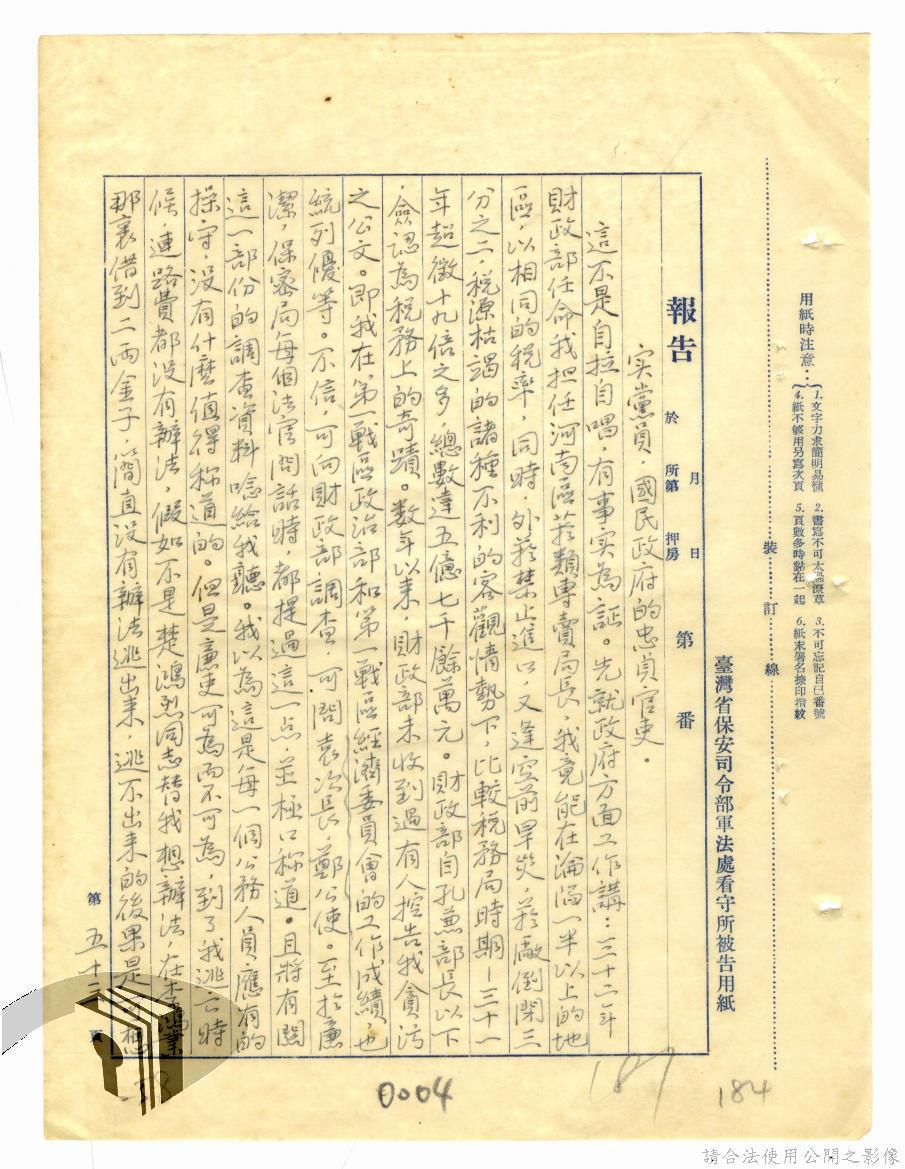 用紙時注意：
1. 文字力求簡明易懂 2. 書寫不可太過潦草 3. 不可忘記自己番號
4. 紙不够用另寫次頁 5. 頁數多時黏在一起 6. 紙末署名捺印指紋
裝訂線
臺灣省保安司令部軍法處看守所被告用紙
報告 於 月 日 所第 押房 第 番
实黨員，國民政府的忠貞官吏。
這不是自拉自唱，有事实為証。先就政府方面工作講：三十二年
財政部任命我担任河南區菸類專賣局長，我竟能在淪陷一半以上的地
區，以相同的税率，同時，外菸禁止進口，又逢空前旱災，菸廠倒闭三
分之二，税源枯竭的諸種不利的客觀情勢下，比較税務局時期—三十一
年超徵十九倍之多，總數達五億七千餘萬元。財政部自孔兼部長以下
僉認為税務上的奇蹟。数年以来，財政部未收到過有人控告我貪污
之公文。即我在第一戰區政治部和第一戰區經濟委員會的工作成績，也
統列優等。不信，可向財政部調查，可問袁次長，鄭公使。至於廉
潔，保密局每個法官問話時，都提過這一点，並極口称道。且將有関
這一部份的調查資料唸給我聽。我以為這是每一個公務人員應有的
操守，没有什麽值得称道的。但是廉吏可為而不可為，到了我逃亡時
候，連路費都没有辦法，假如不是楚鴻烈同志替我想辦法，在李鴻業
那裏借到二両金子，簡直没有辦法逃出来，逃不出来的後果是可想
第 五十三 頁
53
0004
187
184
請合法使用公開之影像